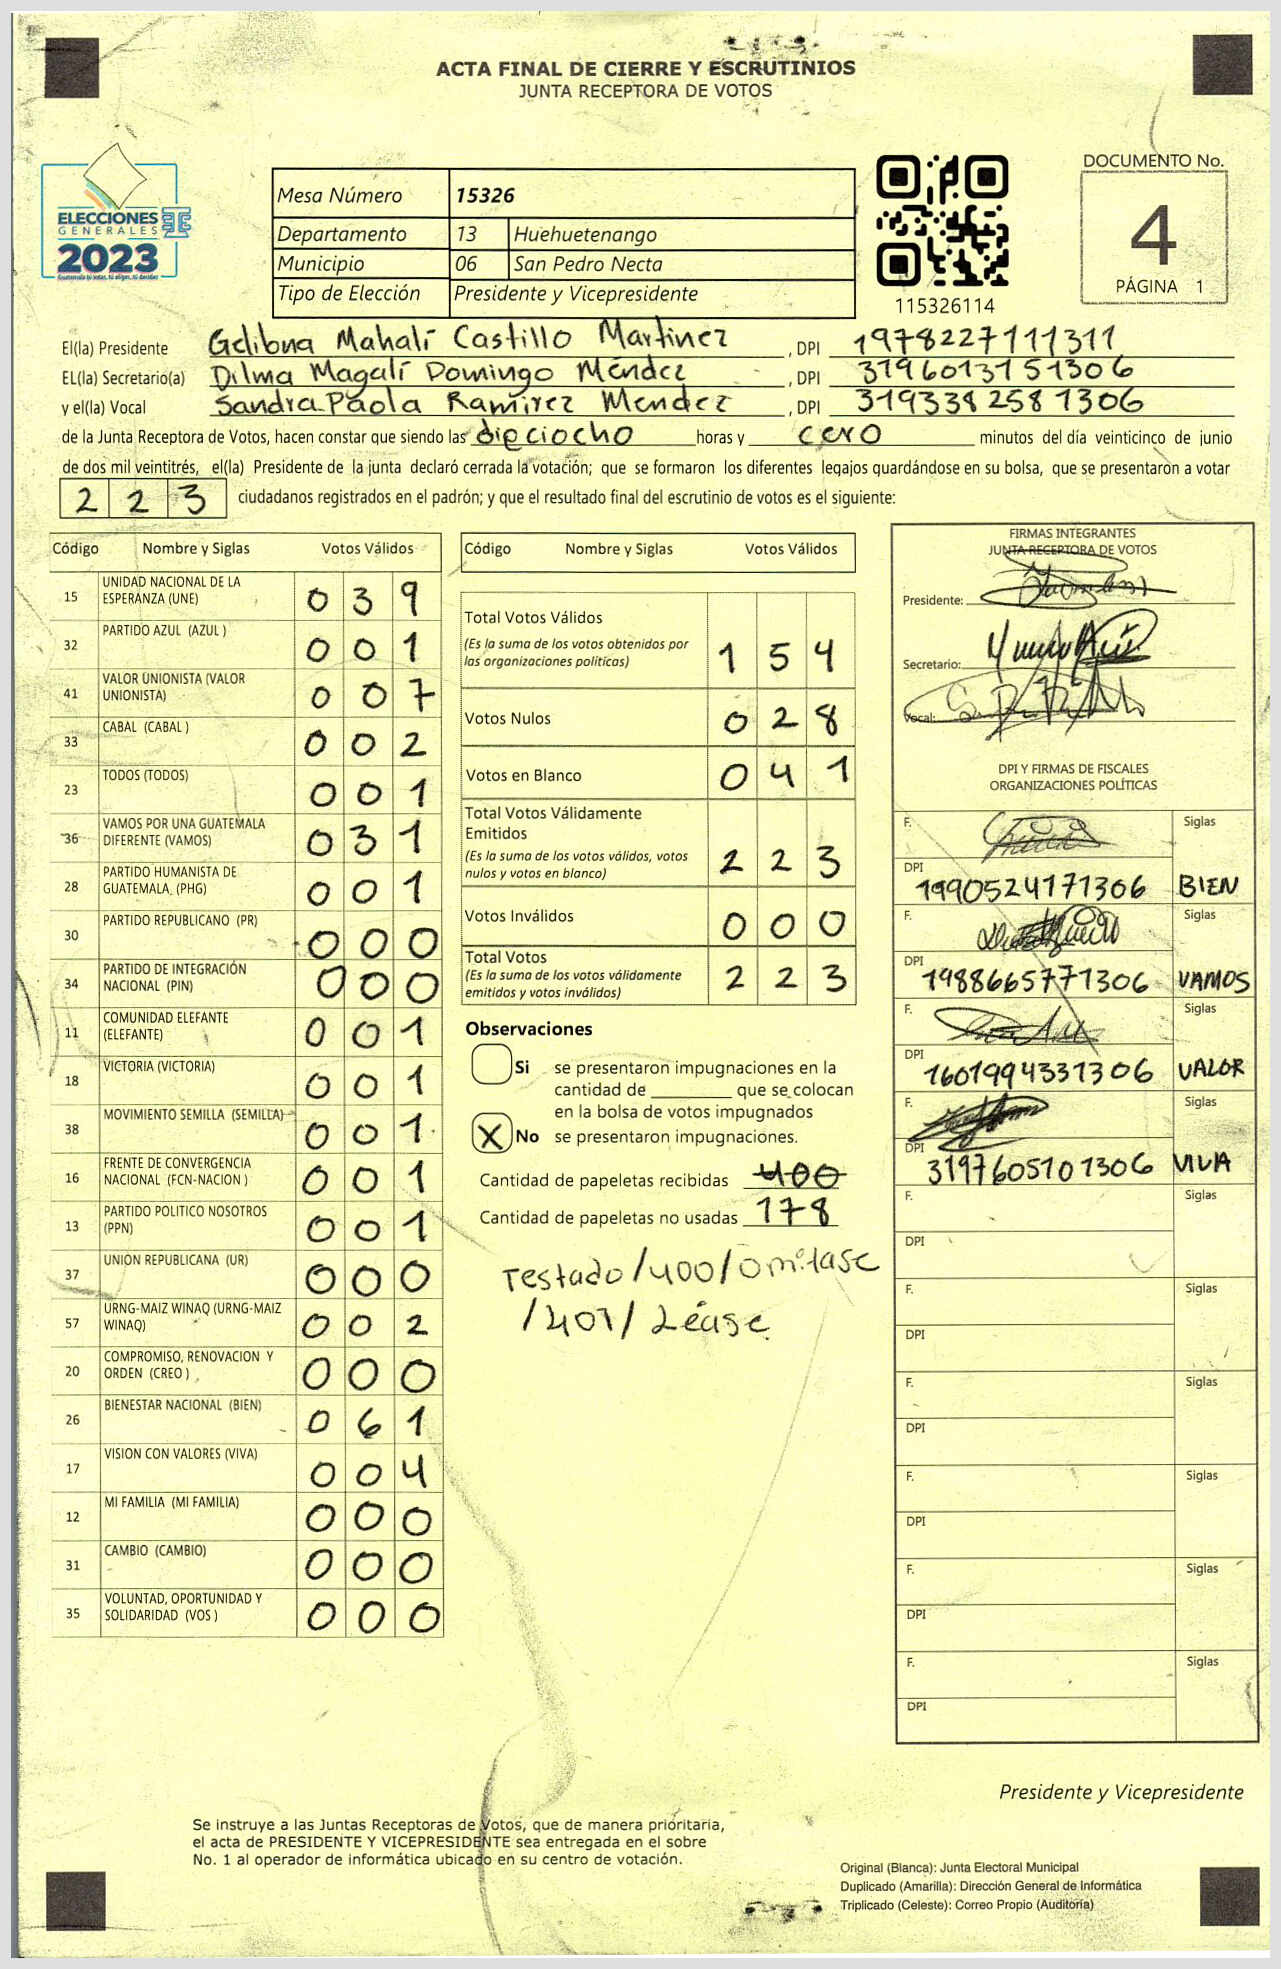 ACTA FINAL DE CIERRE Y ESCRUTINIOS
JUNTA RECEPTORA DE VOTOS
ELECCIONES
GENERALES
2023
Mesa Número 15326
Departamento 13 Huehuetenango
Municipio 06 San Pedro Necta
Tipo de Elección Presidente y Vicepresidente
115326114
DOCUMENTO No.
4
PÁGINA 1
El(la) Presidente Mahalí Castillo Martinez , DPI 1978227111311
EL(la) Secretario(a) Dilma Magalí Domingo Méndez , DPI 3196013151306
y el(la) Vocal Sandra Paola Ramirez Mendez , DPI 3193382581306
de la Junta Receptora de Votos, hacen constar que siendo las dieciocho horas y cero minutos del día veinticinco de junio
de dos mil veintitrés, el(la) Presidente de la junta declaró cerrada la votación; que se formaron los diferentes legajos guardándose en su bolsa, que se presentaron a votar
223 ciudadanos registrados en el padrón; y que el resultado final del escrutinio de votos es el siguiente:
Código Nombre y Siglas Votos Válidos
15 UNIDAD NACIONAL DE LA ESPERANZA (UNE) 039
32 PARTIDO AZUL (AZUL ) 001
41 VALOR UNIONISTA (VALOR UNIONISTA) 007
33 CABAL (CABAL ) 002
23 TODOS (TODOS) 001
36 VAMOS POR UNA GUATEMALA DIFERENTE (VAMOS) 031
28 PARTIDO HUMANISTA DE GUATEMALA, (PHG) 001
30 PARTIDO REPUBLICANO (PR) 000
34 PARTIDO DE INTEGRACIÓN NACIONAL (PIN) 000
11 COMUNIDAD ELEFANTE (ELEFANTE) 001
18 VICTORIA (VICTORIA) 001
38 MOVIMIENTO SEMILLA (SEMILLA) 001
16 FRENTE DE CONVERGENCIA NACIONAL (FCN-NACION ) 001
13 PARTIDO POLITICO NOSOTROS (PPN) 001
37 UNION REPUBLICANA (UR) 000
57 URNG-MAIZ WINAQ (URNG-MAIZ WINAQ) 002
20 COMPROMISO, RENOVACION Y ORDEN (CREO ) 000
26 BIENESTAR NACIONAL (BIEN) 061
17 VISION CON VALORES (VIVA) 004
12 MI FAMILIA (MI FAMILIA) 000
31 CAMBIO (CAMBIO) 000
35 VOLUNTAD, OPORTUNIDAD Y SOLIDARIDAD (VOS ) 000
Código Nombre y Siglas Votos Válidos
Total Votos Válidos
(Es la suma de los votos obtenidos por
las organizaciones políticas) 154
Votos Nulos 028
Votos en Blanco 041
Total Votos Válidamente
Emitidos
(Es la suma de los votos válidos, votos
nulos y votos en blanco) 223
Votos Inválidos 000
Total Votos
(Es la suma de los votos válidamente
emitidos y votos inválidos) 223
Observaciones
Si se presentaron impugnaciones en la
cantidad de ________ que se colocan
en la bolsa de votos impugnados
X No se presentaron impugnaciones.
Cantidad de papeletas recibidas 400
Cantidad de papeletas no usadas 178
Testado/400/Omitase
/401/ Léase
FIRMAS INTEGRANTES
JUNTA RECEPTORA DE VOTOS
Presidente:
Secretario:
Vocal:
DPI Y FIRMAS DE FISCALES
ORGANIZACIONES POLÍTICAS
F. Siglas
DPI 1990524171306 BIEN
F. Siglas
DPI 1988665771306 VAMOS
F. Siglas
DPI 1601994331306 VALOR
F. Siglas
DPI 3197605101306 VIVA
F. Siglas
DPI
F. Siglas
DPI
F. Siglas
DPI
F. Siglas
DPI
F. Siglas
DPI
F. Siglas
DPI
Presidente y Vicepresidente
Se instruye a las Juntas Receptoras de Votos, que de manera prioritaria,
el acta de PRESIDENTE Y VICEPRESIDENTE sea entregada en el sobre
No. 1 al operador de informática ubicado en su centro de votación.
Original (Blanca): Junta Electoral Municipal
Duplicado (Amarilla): Dirección General de Informática
Triplicado (Celeste): Correo Propio (Auditoría)